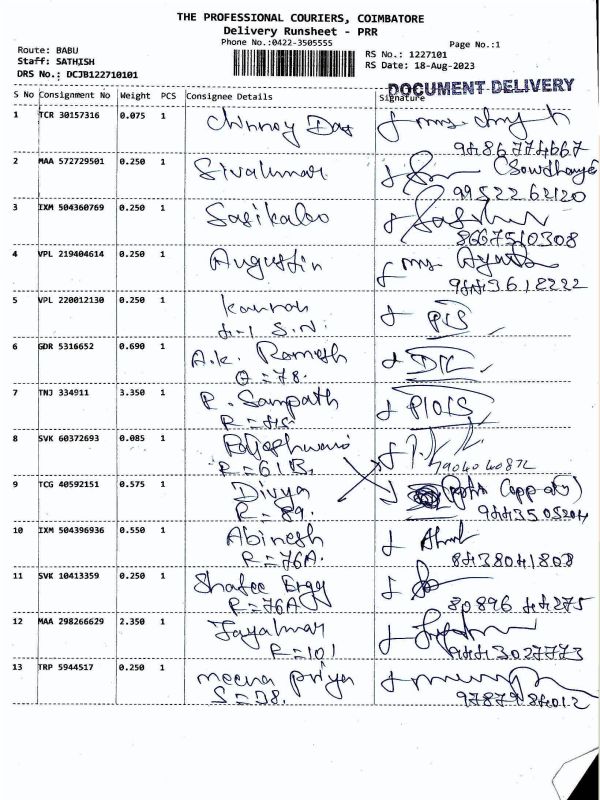 THE PROFESSIONAL COURIERS, COIMBATORE
Delivery Runsheet - PRR
Phone No.:0422-3505555
Page No.:1
Route: BABU
Staff: SATHISH
DRS No.: DCJB122710101
RS No.: 1227101
RS Date: 18-Aug-2023
DOCUMENT DELIVERY
S No Consignment No Weight PCS Consignee Details Signature
1 TCR 30157316 0.075 1
2 MAA 572729501 0.250 1 Sivakumar
9952262120
3 IXM 504360769 0.250 1 Sasikala
8667510308
4 VPL 219404614 0.250 1 Augustin
9443618222
5 VPL 220012130 0.250 1 Kannan
S.N.
6 GDR 5316652 0.690 1 A.K. Ramesh
=78.
7 TNJ 334911 3.350 1 R. Sampath
8 SVK 60372693 0.085 1 Rajeshwari
R=61B.
9 TCG 40592151 0.575 1 Divya
R=89.
9443505204
10 IXM 504396936 0.550 1 Abinesh
R=76A.
8438041808
11 SVK 10413359 0.250 1 Shafee
R=76A
8089644275
12 MAA 298266629 2.350 1 Jayakumar
R=101
9443027773
13 TRP 5944517 0.250 1 meena priya
9787984012